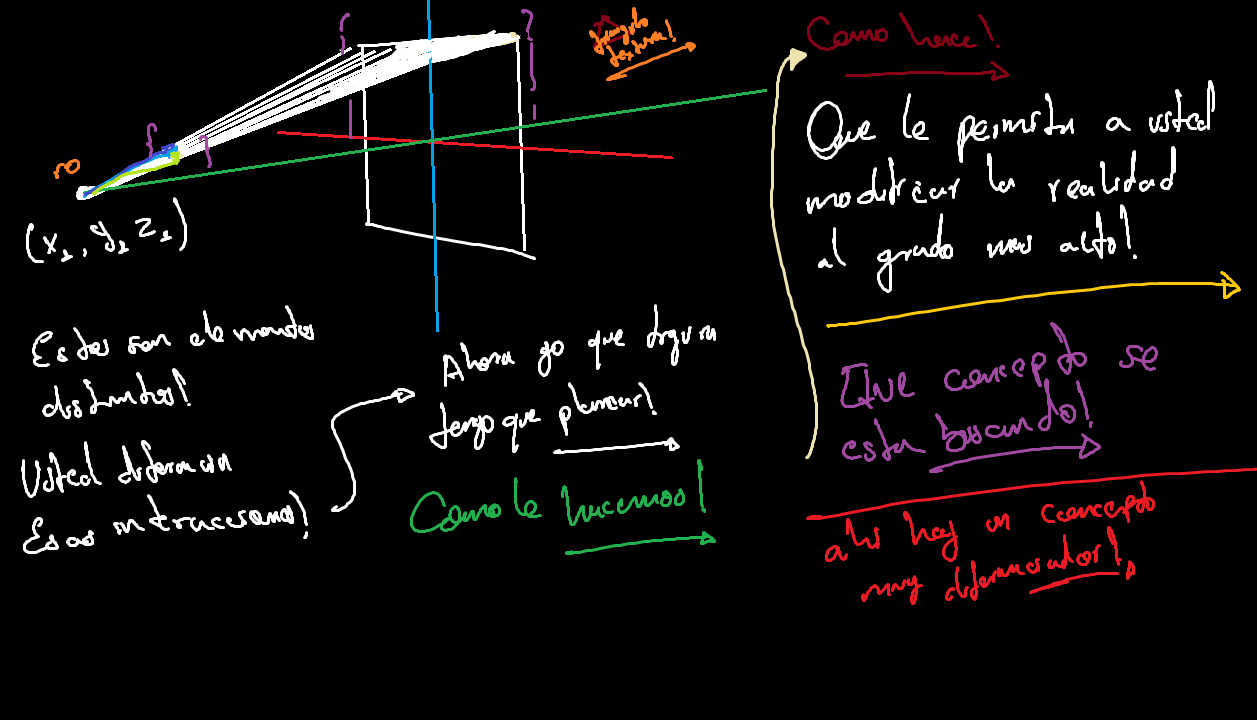 ro
(x₁, y₁ z₁)
Estos son elementos
distintos!
Usted diferencia
Esas interacciones!
Ahora yo que figura
tengo que planear!
Como le hacemos!
triangulo
textura!
Como hace!
Que le permita a usted
modificar la realidad
al grado mas alto!
Que concepto se
esta buscando!
ahi hay un concepto
muy diferenciador!